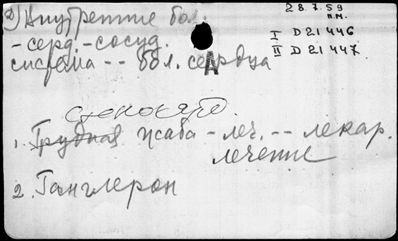 2) Внутренние бол.
28.7.59
п.м.
- серд.-сосуд.
I D 21 446
система -- бол. сердца
II D 21 447
А
стенокард.
1. Грудная жаба - леч. -- лекар.
лечение
2. Ганглерон